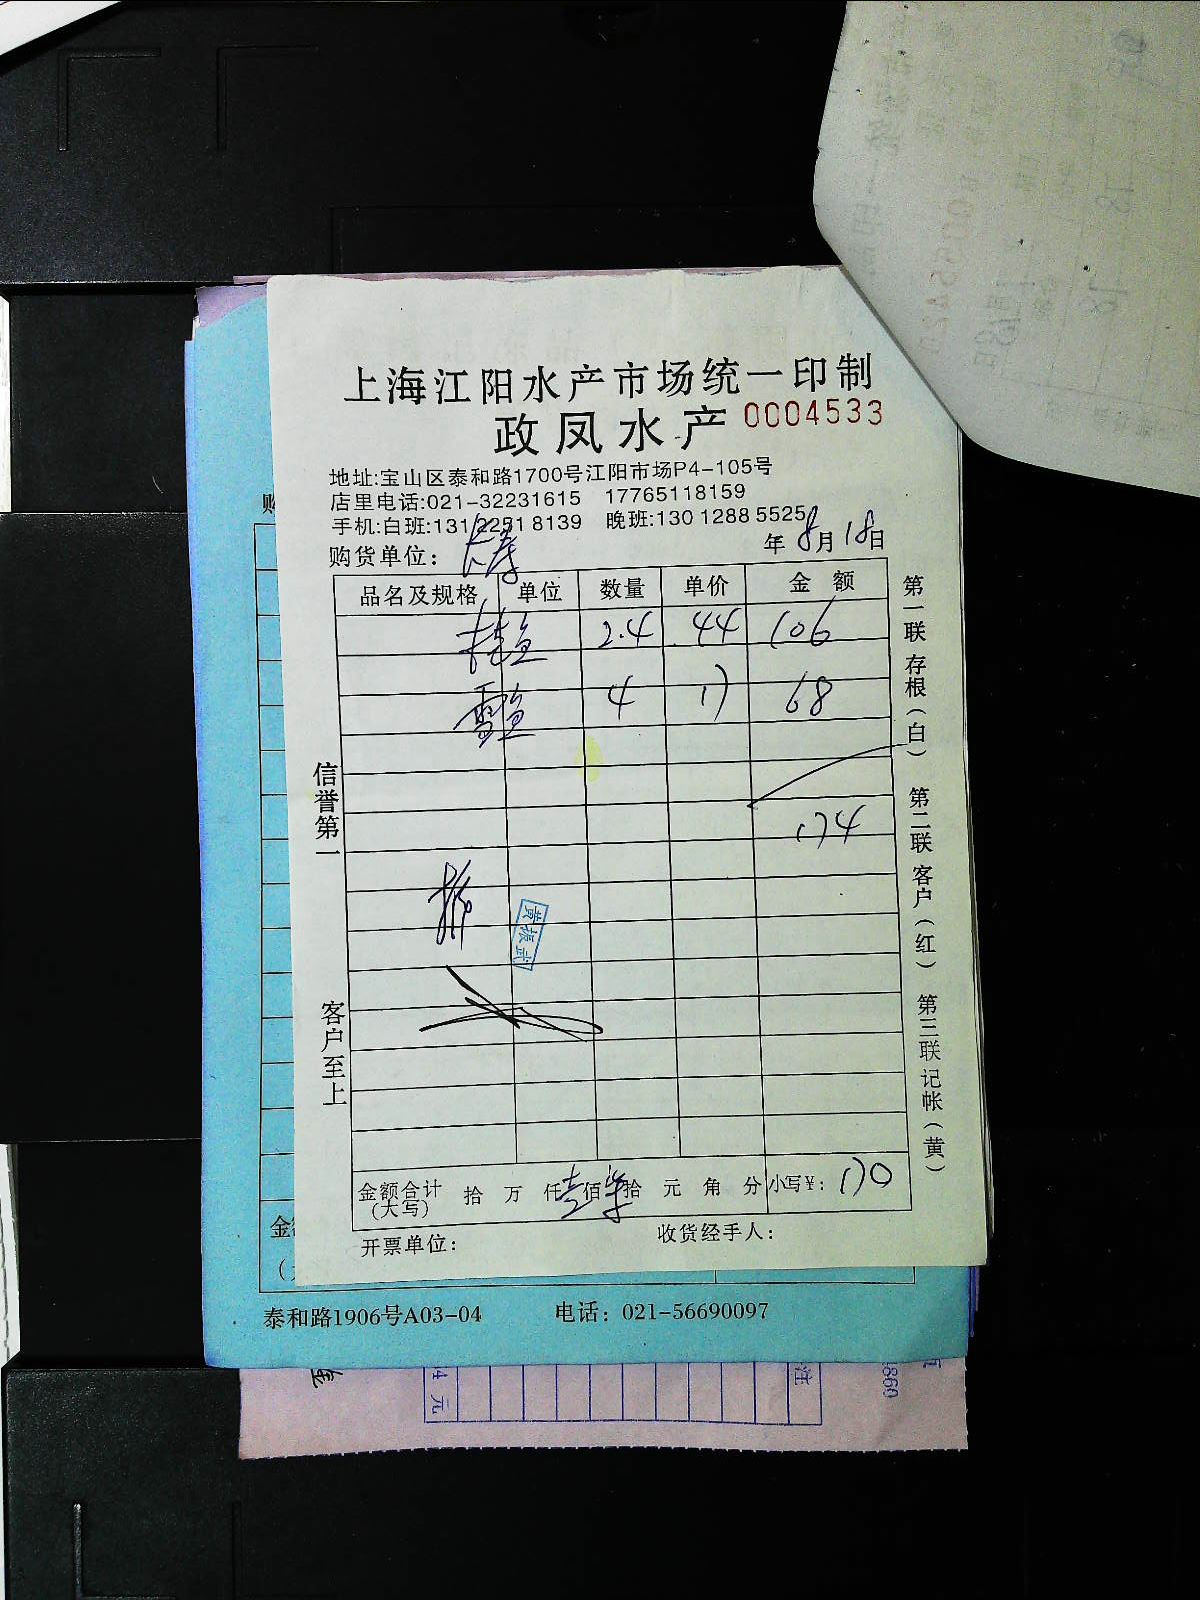 上海江阳水产市场统一印制
政凤水产 0004533
地址:宝山区泰和路1700号江阳市场P4-105号
店里电话:021-32231615 17765118159
手机:白班:131 2251 8139 晚班:130 1288 5525
购货单位: 长寿 年 8月18日
品名及规格 单位 数量 单价 金额
桂鱼 2.4 44 106
雪鱼 4 17 68
174
黄振武
金额合计(大写) 拾 万 仟 壹 佰 柒 拾 元 角 分 小写¥: 170
开票单位: 收货经手人:
信誉第一
客户至上
第一联 存根(白) 第二联 客户(红) 第三联 记帐(黄)
购
金
泰和路1906号A03-04 电话: 021-56690097
4 元
注
860